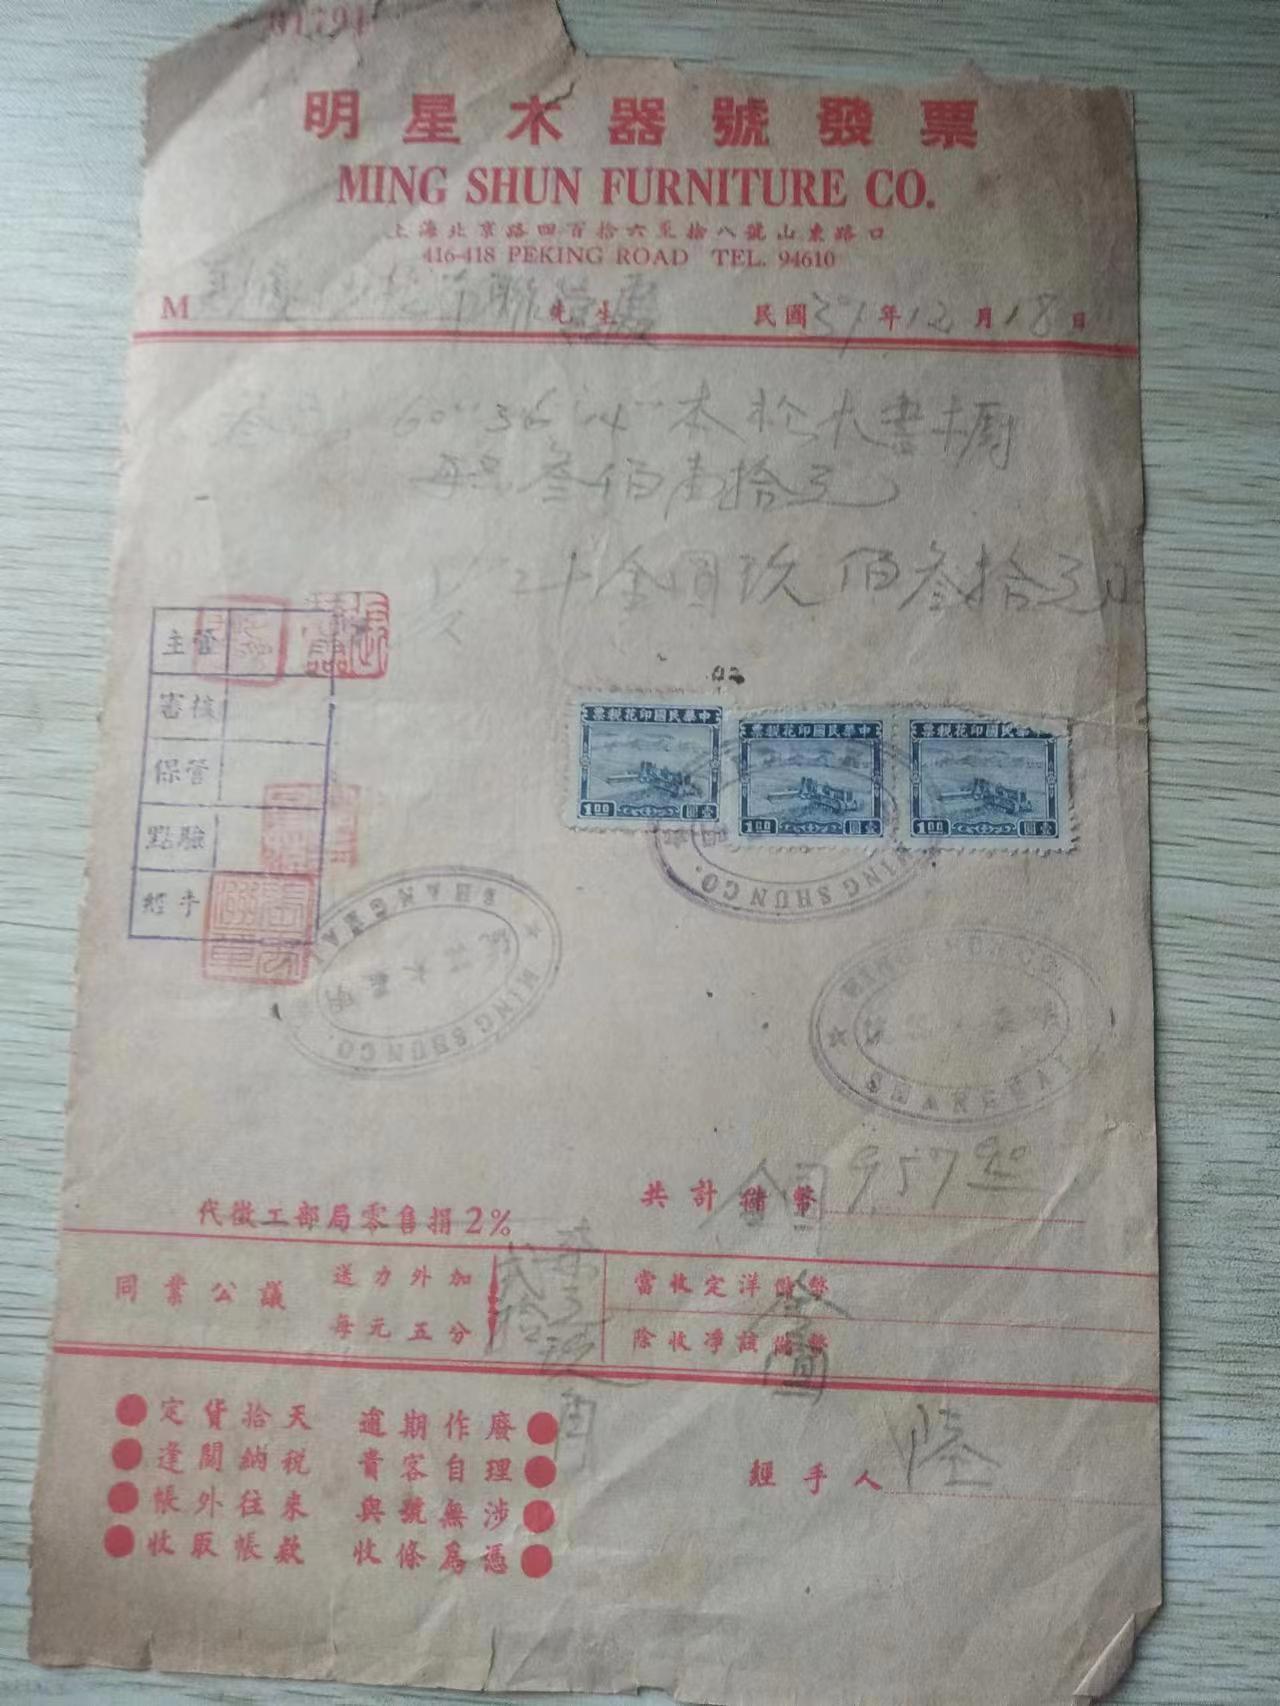 01791
明星木器號發票
MING SHUN FURNITURE CO.
上海北京路四百拾六至拾八號山東路口
416-418 PEKING ROAD TEL. 94610
M 先生 民國37年12月18日
60" 36" 14" 木松大書橱
每只叁佰壹拾元
金圓玖佰叁拾元
主管
審核
保管
點驗
經手
中華民國印花稅票
1.00 壹圓
中華民國印花稅票
1.00 壹圓
中華民國印花稅票
1.00 壹圓
MING SHUN CO.
SHANGHAI
明星木器號
MING SHUN CO.
SHANGHAI
共計儲幣 957.90
代徵工部局零售捐2%
同業公議
送力外加
每元五分
當收定洋儲幣
除收凈該儲幣
金圓
定貨拾天 逾期作廢
逢關納税 貴客自理
帳外往來 與號無涉
收取帳款 收條為憑
經手人 陸